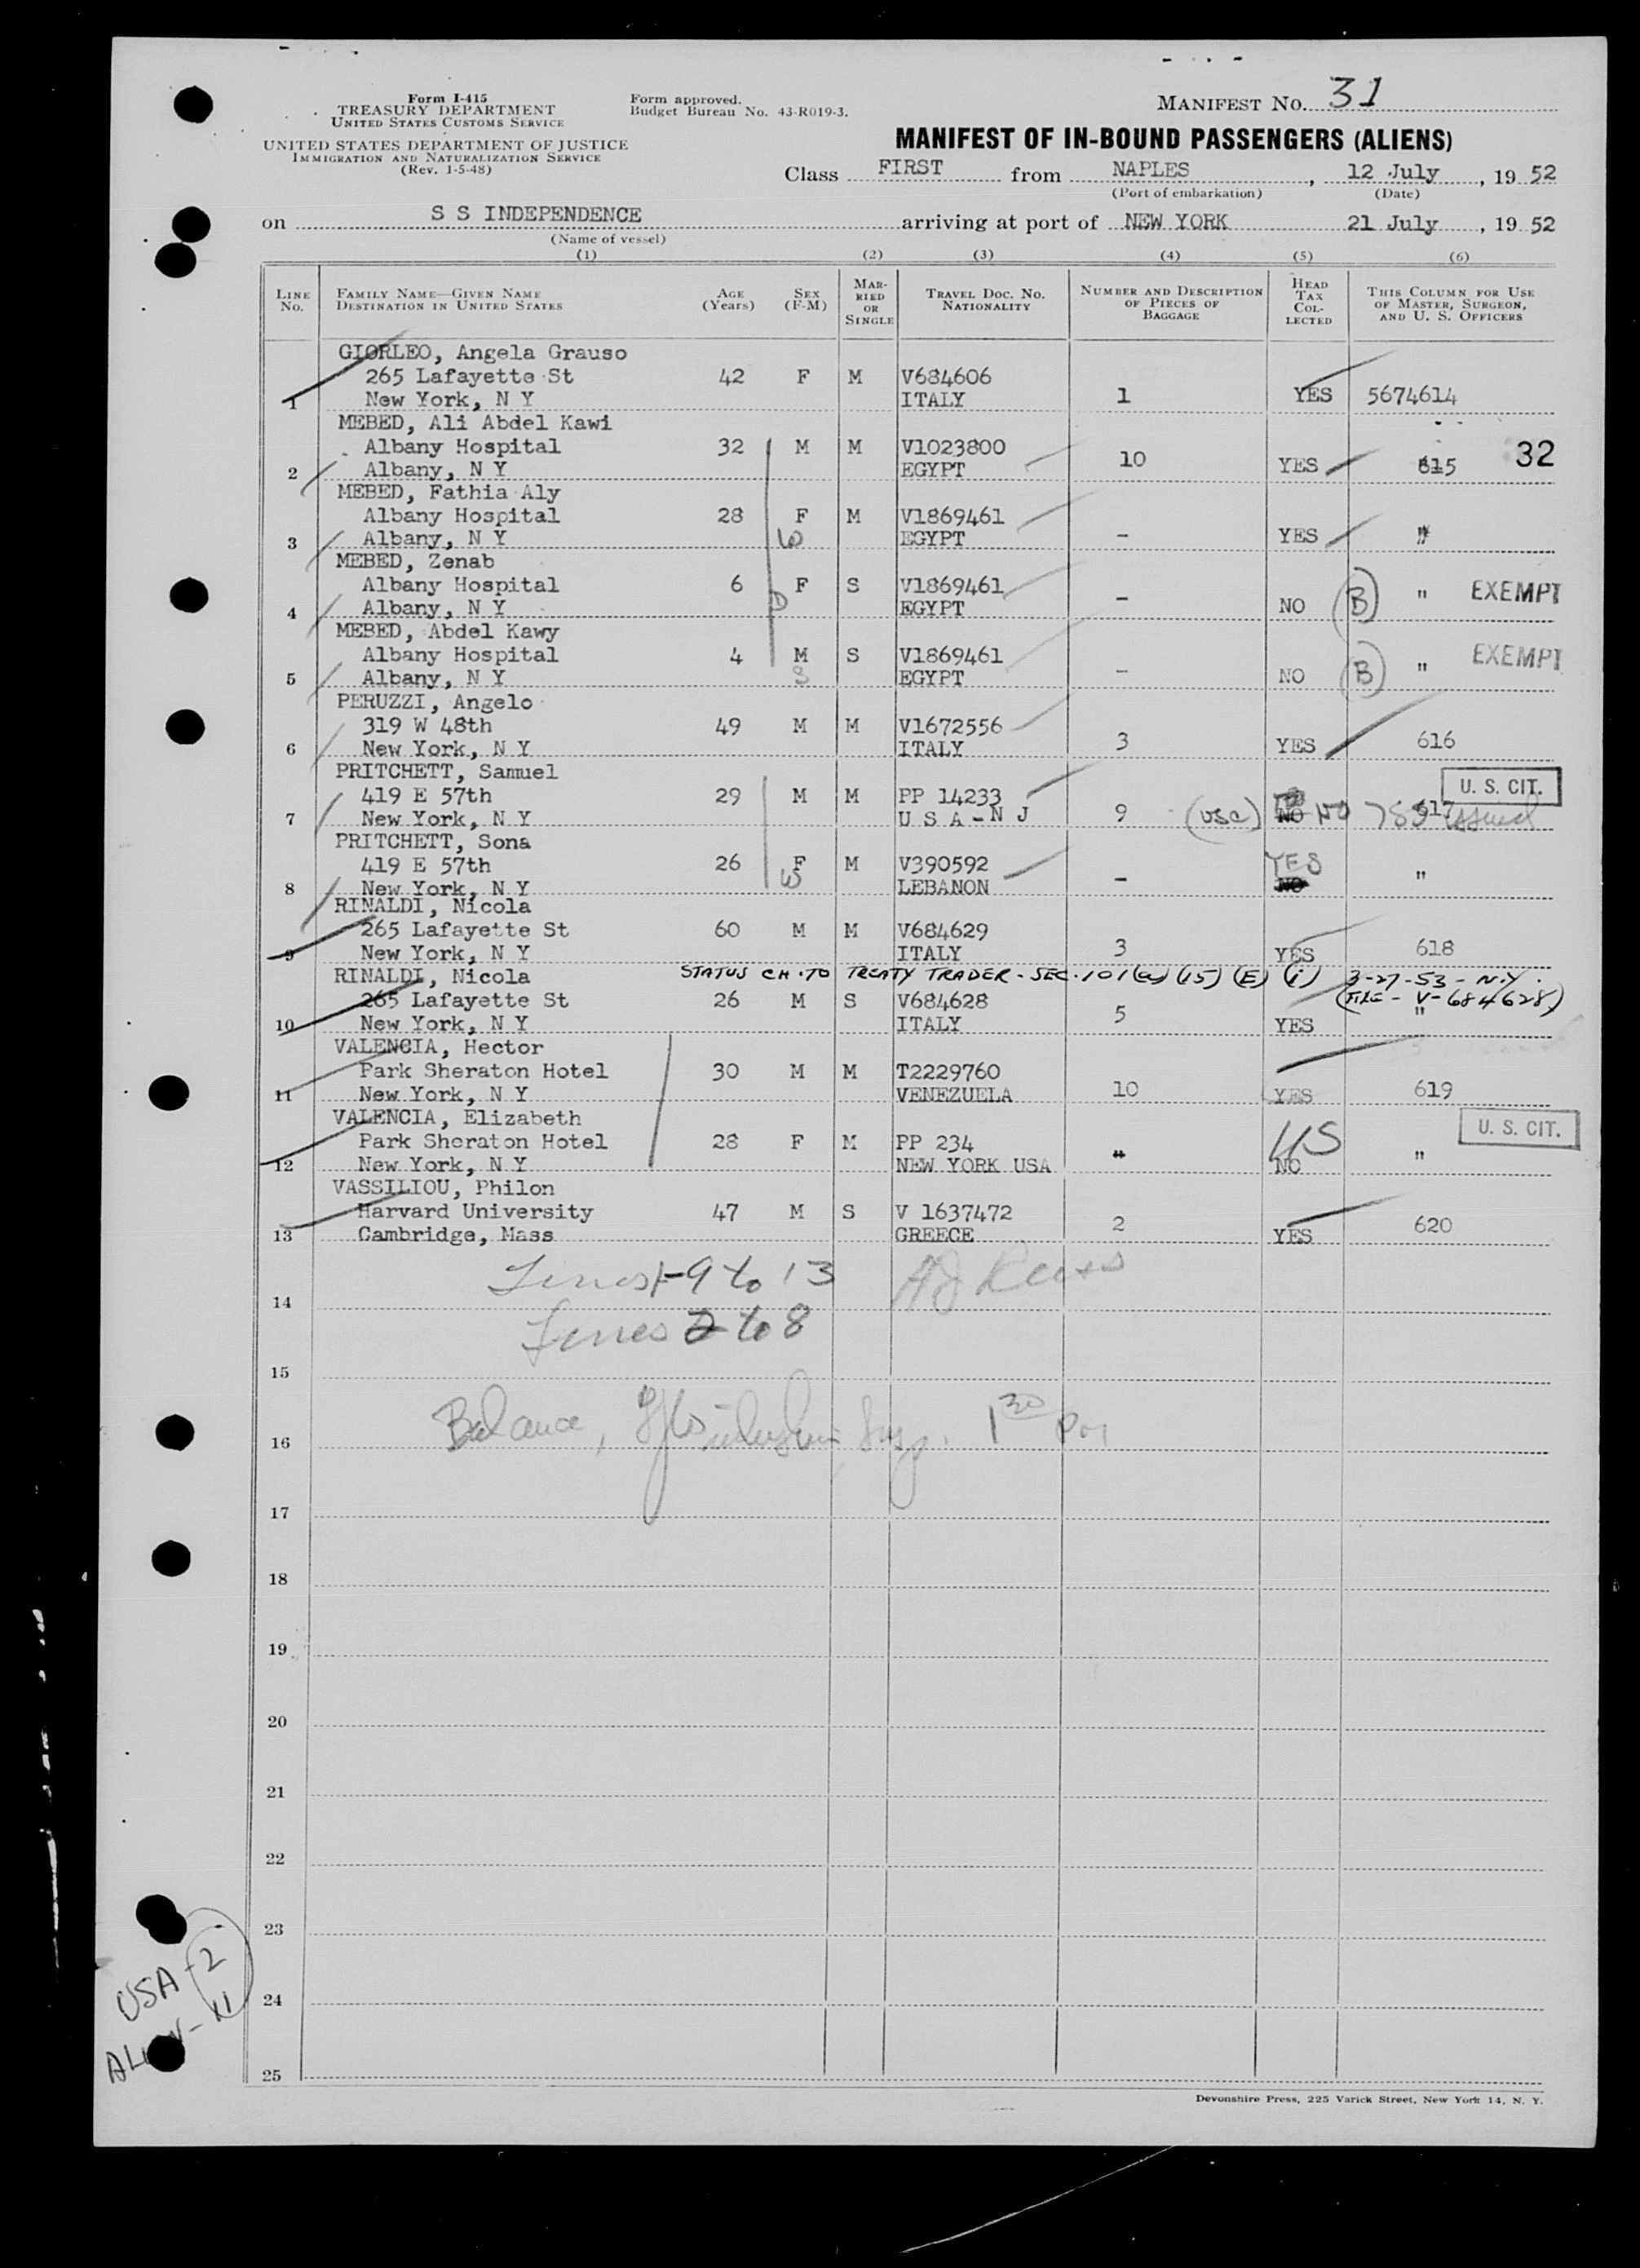 Form I-415
TREASURY DEPARTMENT
UNITED STATES CUSTOMS SERVICE
UNITED STATES DEPARTMENT OF JUSTICE
IMMIGRATION AND NATURALIZATION SERVICE
(Rev. 1-5-48)
Form approved.
Budget Bureau No. 43-R019-3.
MANIFEST NO. 31
MANIFEST OF IN-BOUND PASSENGERS (ALIENS)
Class FIRST from NAPLES, 12 July, 19 52
(Port of embarkation) (Date)
on S S INDEPENDENCE arriving at port of NEW YORK 21 July, 19 52
(Name of vessel)
(1) (2) (3) (4) (5) (6)
LINE NO.
FAMILY NAME—GIVEN NAME
DESTINATION IN UNITED STATES
AGE (Years)
SEX (F-M)
MARRIED OR SINGLE
TRAVEL DOC. NO.
NATIONALITY
NUMBER AND DESCRIPTION OF PIECES OF BAGGAGE
HEAD TAX COLLECTED
THIS COLUMN FOR USE OF MASTER, SURGEON, AND U. S. OFFICERS
GIORLEO, Angela Grauso
265 Lafayette St 42 F M V684606
1 New York, N Y ITALY 1 YES 5674614
MEBED, Ali Abdel Kawi
Albany Hospital 32 M M V1023800
2 Albany, N Y EGYPT 10 YES 615 32
MEBED, Fathia Aly
Albany Hospital 28 F M V1869461
3 Albany, N Y W EGYPT - YES "
MEBED, Zenab
Albany Hospital 6 F S V1869461
4 Albany, N Y D EGYPT - NO (B) " EXEMPT
MEBED, Abdel Kawy
Albany Hospital 4 M S V1869461
5 Albany, N Y S EGYPT - NO (B) " EXEMPT
PERUZZI, Angelo
319 W 48th 49 M M V1672556
6 New York, N Y ITALY 3 YES 616
PRITCHETT, Samuel U. S. CIT.
419 E 57th 29 M M PP 14233
7 New York, N Y U S A - N J 9 (USC) NO NO 617 issued
PRITCHETT, Sona
419 E 57th 26 F M V390592 YES
8 New York, N Y W LEBANON - NO "
RINALDI, Nicola
265 Lafayette St 60 M M V684629
9 New York, N Y ITALY 3 YES 618
RINALDI, Nicola STATUS CH. TO TREATY TRADER - SEC. 101 (a) (15) (E) (i) 3-27-53 - N.Y.
265 Lafayette St 26 M S V684628 (FILE - V-684628)
10 New York, N Y ITALY 5 YES "
VALENCIA, Hector
Park Sheraton Hotel 30 M M T2229760
11 New York, N Y VENEZUELA 10 YES 619
VALENCIA, Elizabeth U. S. CIT.
Park Sheraton Hotel 28 F M PP 234 US
12 New York, N Y NEW YORK USA " NO "
VASSILIOU, Philon
Harvard University 47 M S V 1637472
13 Cambridge, Mass GREECE 2 YES 620
Lines 1-9 to 13
14
Lines 2 to 8
15
Balance, 1 30
16
17
18
19
20
21
22
23
24
25
USA - 2
11
Devonshire Press, 225 Varick Street, New York 14, N. Y.